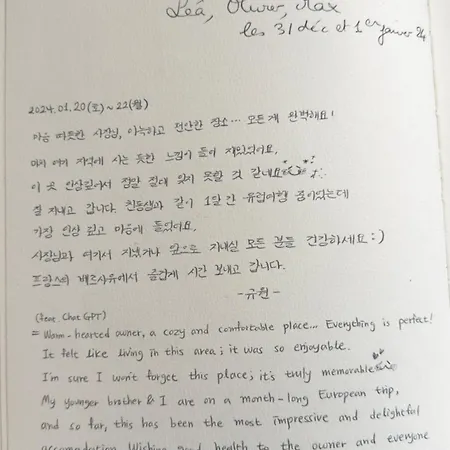 Léa, Oliver, Max
les 31 déc et 1er janvier 24
2024.01.20(토)~22(월)
마음 따뜻한 사장님, 아늑하고 편안한 장소... 모든 게 완벽해요!
마치 여기 지역에 사는 듯한 느낌이 들어 재밌었어요.
이 곳 인상깊어서 정말 절대 잊지 못할 것 같네요
잘 지내고 갑니다. 친동생과 같이 1달 간 유럽여행 중이었는데
가장 인상 깊고 마음에 들었어요.
사장님과 여기서 지냈거나 앞으로 지내실 모든 분들 건강하세요:)
프랑스의 베즈사유에서 즐겁게 시간 보내고 갑니다.
-규원-
(feat. Chat GPT)
= Warm-hearted owner, a cozy and comfortable place... Everything is perfect!
It felt like living in this area; it was so enjoyable.
I'm sure I won't forget this place; it's truly memorable
My younger brother & I are on a month-long European trip,
and so far, this has been the most impressive and delightful
accomodation. Wishing good health to the owner and everyone